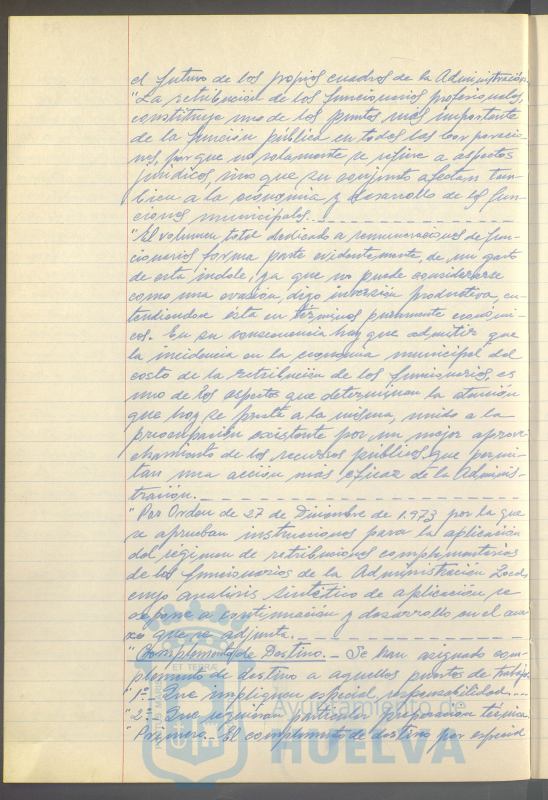 el futuro de los propios cuadros de la Administración.
"La retribución de los funcionarios profesionales,
constituye uno de los puntos más importante
de la función pública en todas las Corporacio-
nes, porque no solamente se refiere a aspectos
jurídicos, sino que en su conjunto afectan tam-
bien a la economía y desarrollo de las fun-
ciones municipales.
"El volumen total dedicado a remuneraciones de fun-
cionarios forma parte evidentemente, de un gasto
de esta índole, ya que no puede considerarse
como una evasion, digo inversión productiva, en-
tendiendose esta en términos puramente económi-
cos. En su consecuencia hay que admitir que
la incidencia en la economía municipal del
costo de la retribución de los funcionarios, es
uno de los aspectos que determinan la atención
que hoy se preste a la misma, unido a la
preocupación existente por un mejor aprove-
chamiento de los recursos públicos que permi-
tan una acción más eficaz de la Adminis-
tración.
"Por Orden de 27 de Diciembre de 1.973 por la que
se aprueban instrucciones para la aplicación
del régimen de retribuciones complementarias
de los funcionarios de la Administración Local,
cuyo analisis sintético de aplicación, se
expone a continuación y desarrollo en el ane-
xo que se adjunta.
"Complemento de Destino.- Se han asignado com-
plemento de destino a aquellos puestos de trabajo:
"1º- Que impliquen especial responsabilidad.
"2º- Que requieran particular preparación técnica.
"Primero.- El complemento de destino por especial
ET TERRÆ
Ayuntamiento de
HUELVA